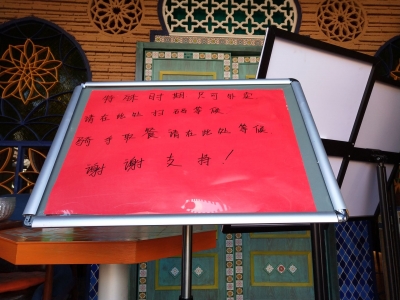 特殊时期只可外卖
请在此处扫码等候
骑手取餐请在此处等候
谢谢支持！